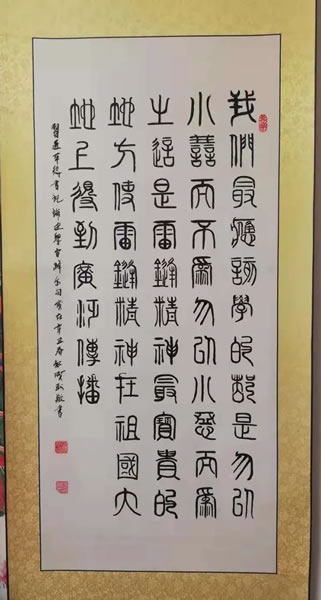 我們最應該學的就是勿以
小善而不為勿以小惡而為
之這是雷鋒精神最寶貴的
地方使雷鋒精神在祖國大
地上得到廣泛傳播
習近平總書記論述學雷鋒 歲在辛丑春 敬書